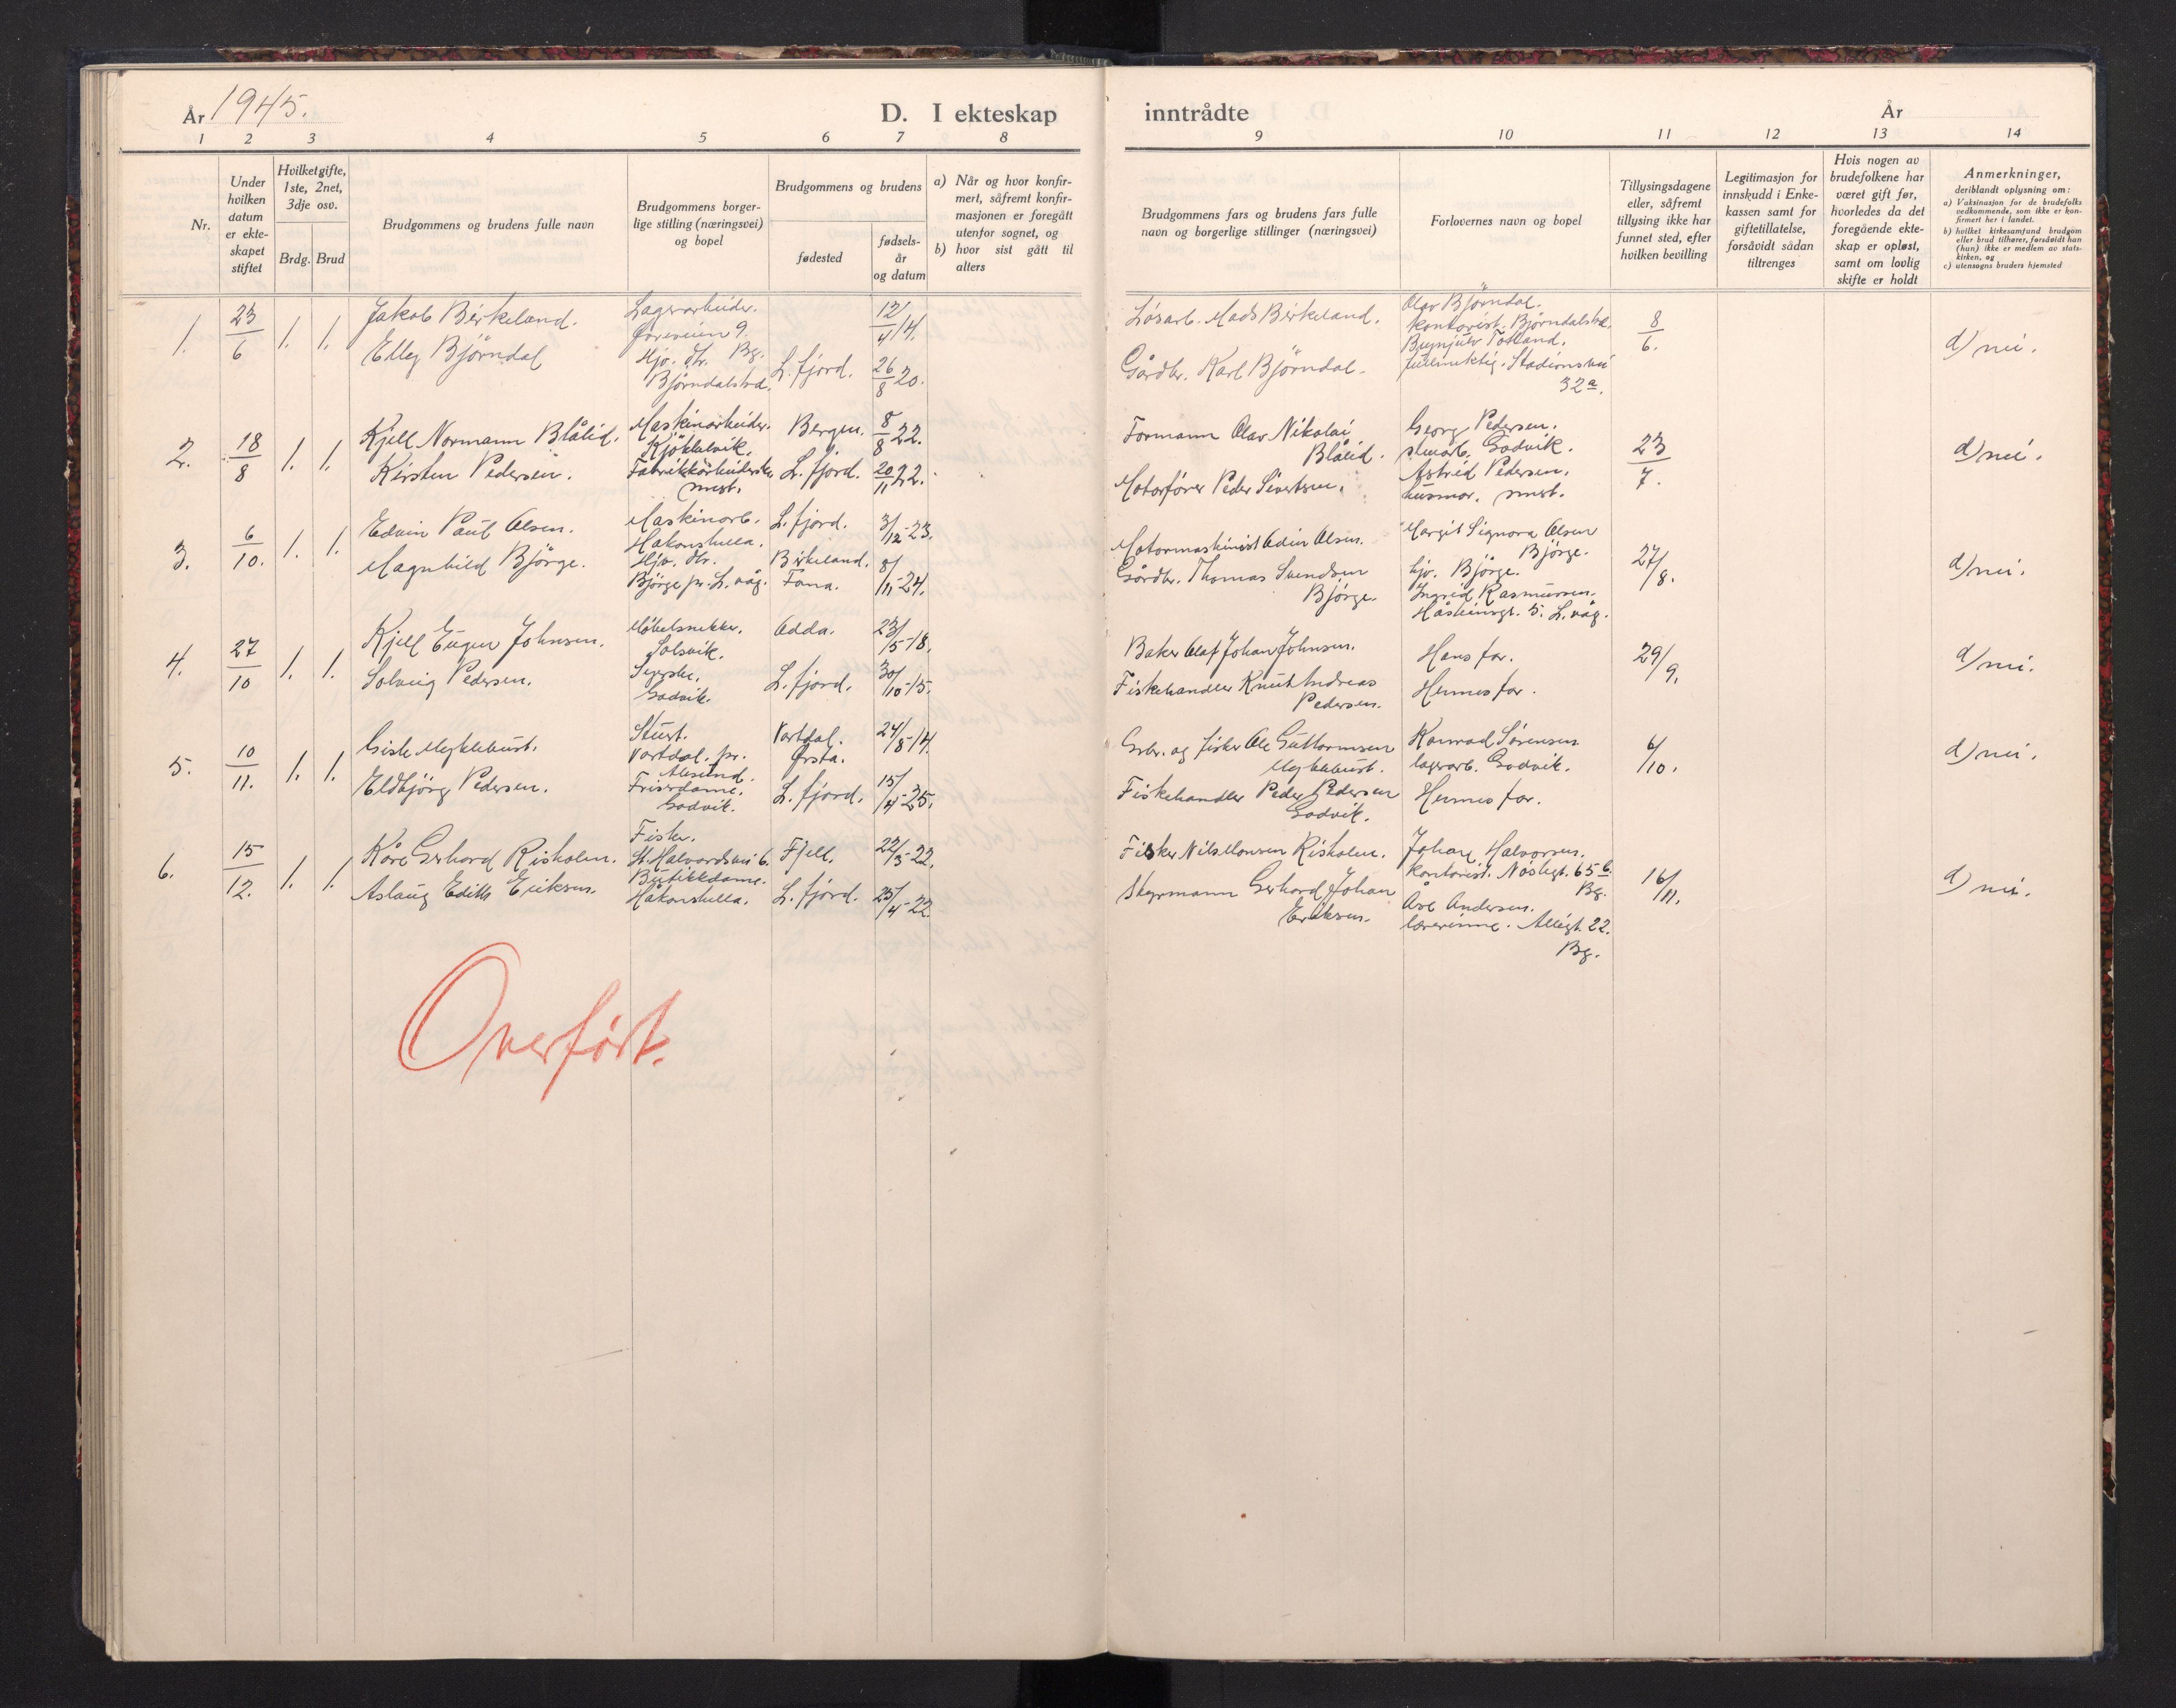 År 1945.
D. I ekteskap inntrådte
År
1 2 3 4 5 6 7 8 9 10 11 12 13 14
Nr.
Under
hvilken
datum
er ekte-
skapet
stiftet
Hvilket gifte,
1ste, 2net,
3dje osv.
Brdg. Brud
Brudgommens og brudens fulle navn
Brudgommens borger-
lige stilling (næringsvei)
og bopel
Brudgommens og brudens
fødested
fødsels-
år
og datum
a) Når og hvor konfir-
mert, såfremt konfir-
masjonen er foregått
utenfor sognet, og
b) hvor sist gått til
alters
Brudgommens fars og brudens fars fulle
navn og borgerlige stillinger (næringsvei)
Forlovernes navn og bopel
Tillysingsdagene
eller, såfremt
tillysing ikke har
funnet sted, efter
hvilken bevilling
Legitimasjon for
innskudd i Enke-
kassen samt for
giftetillatelse,
forsåvidt sådan
tiltrenges
Hvis nogen av
brudefolkene har
været gift før,
hvorledes da det
foregående ekte-
skap er opløst,
samt om lovlig
skifte er holdt
Anmerkninger,
deriblandt oplysning om:
a) Vaksinasjon for de brudefolks
vedkommende, som ikke er kon-
firmert her i landet.
b) hvilket kirkesamfund brudgom
eller brud tilhører, forsåvidt han
(hun) ikke er medlem av stats-
kirken, og
c) utensogns bruders hjemsted
1. 23/6 1. 1.
Jakob Birkeland.
Elly Bjørndal
Lagerarbeider.
Øvreveien 9.
Hjv. dtr. Bg.
Bjørndalstræ.
L. fjord.
12/4 14.
26/8 20.
Løsarb. Mads Birkeland.
Gårdbr. Karl Bjørndal.
Olav Bjørndal.
kontorist. Bjørndalstræ.
Brynjulv Totland.
fullmektig. Stadionsvei
32a.
8/6.
d) nei.
2. 18/8 1. 1.
Kjell Normann Blålid.
Kirsten Pedersen.
Maskinarbeider.
Kjøkkelvik.
Fabrikkarbeiderske
smst.
Bergen.
L. fjord.
8/8 22.
20/11 22.
Formann Olav Nikolai
Blålid.
Motorfører Peder Sivertsen.
Georg Pedersen.
Godvik.
Astrid Pedersen.
husmor. smst.
23/7.
d) nei.
3. 6/10. 1. 1.
Edvin Paul Olsen.
Magnhild Bjørge.
Maskinarb.
Håkonshella.
Hjv. dtr.
Bjørge pr. L. våg.
L. fjord.
Birkeland.
Fana.
3/12-23.
8/11-24.
Motormaskinist Odin Olsen.
Gårdbr. Thomas Svendsen
Bjørge.
Margit Signora Olsen
Bjørge.
hjv. Bjørge.
Ingrid Rasmussen.
Håsteinsgt. 5. L. våg.
27/8.
d) nei.
4. 27/10 1. 1.
Kjell Eugen Johnsen.
Solveig Pedersen.
Møbelsnekker.
Solsvik.
Syerske.
Godvik.
Odda.
L. fjord.
23/5-18.
30/10-15.
Baker Olaf Johan Johnsen.
Fiskehandler Knut Andreas
Pedersen.
Hans far.
Hennes far.
29/9.
d) nei.
5. 10/11. 1. 1.
Gisle Myklebust.
Eldbjørg Pedersen.
Stuert.
Vartdal. pr.
Ålesund.
Friserdame.
Godvik.
Vartdal.
Ørsta.
L. fjord.
24/8-14.
15/4-25.
Grbr. og fisker Ole Guttormsen
Myklebust.
Fiskehandler Peder Pedersen
Godvik.
Konrad Sørensen
lagerarb. Godvik.
Hennes far.
6/10.
d) nei.
6. 15/12. 1. 1.
Kåre Gerhard Risholm.
Aslaug Edith Eriksen.
Fisker.
St. Halvardsvei 6.
Butikkdame.
Håkonshella.
Fjell.
L. fjord.
22/3-22.
25/4-22
Fisker Nils Monsen Risholm.
Styrmann Gerhard Johan
Eriksen.
Johan Halvorsen.
kontorist. Nøstegt. 65 b.
Bg.
Åse Andersen.
lærerinne. Allégt. 22.
Bg.
16/11.
d) nei.
Overført.